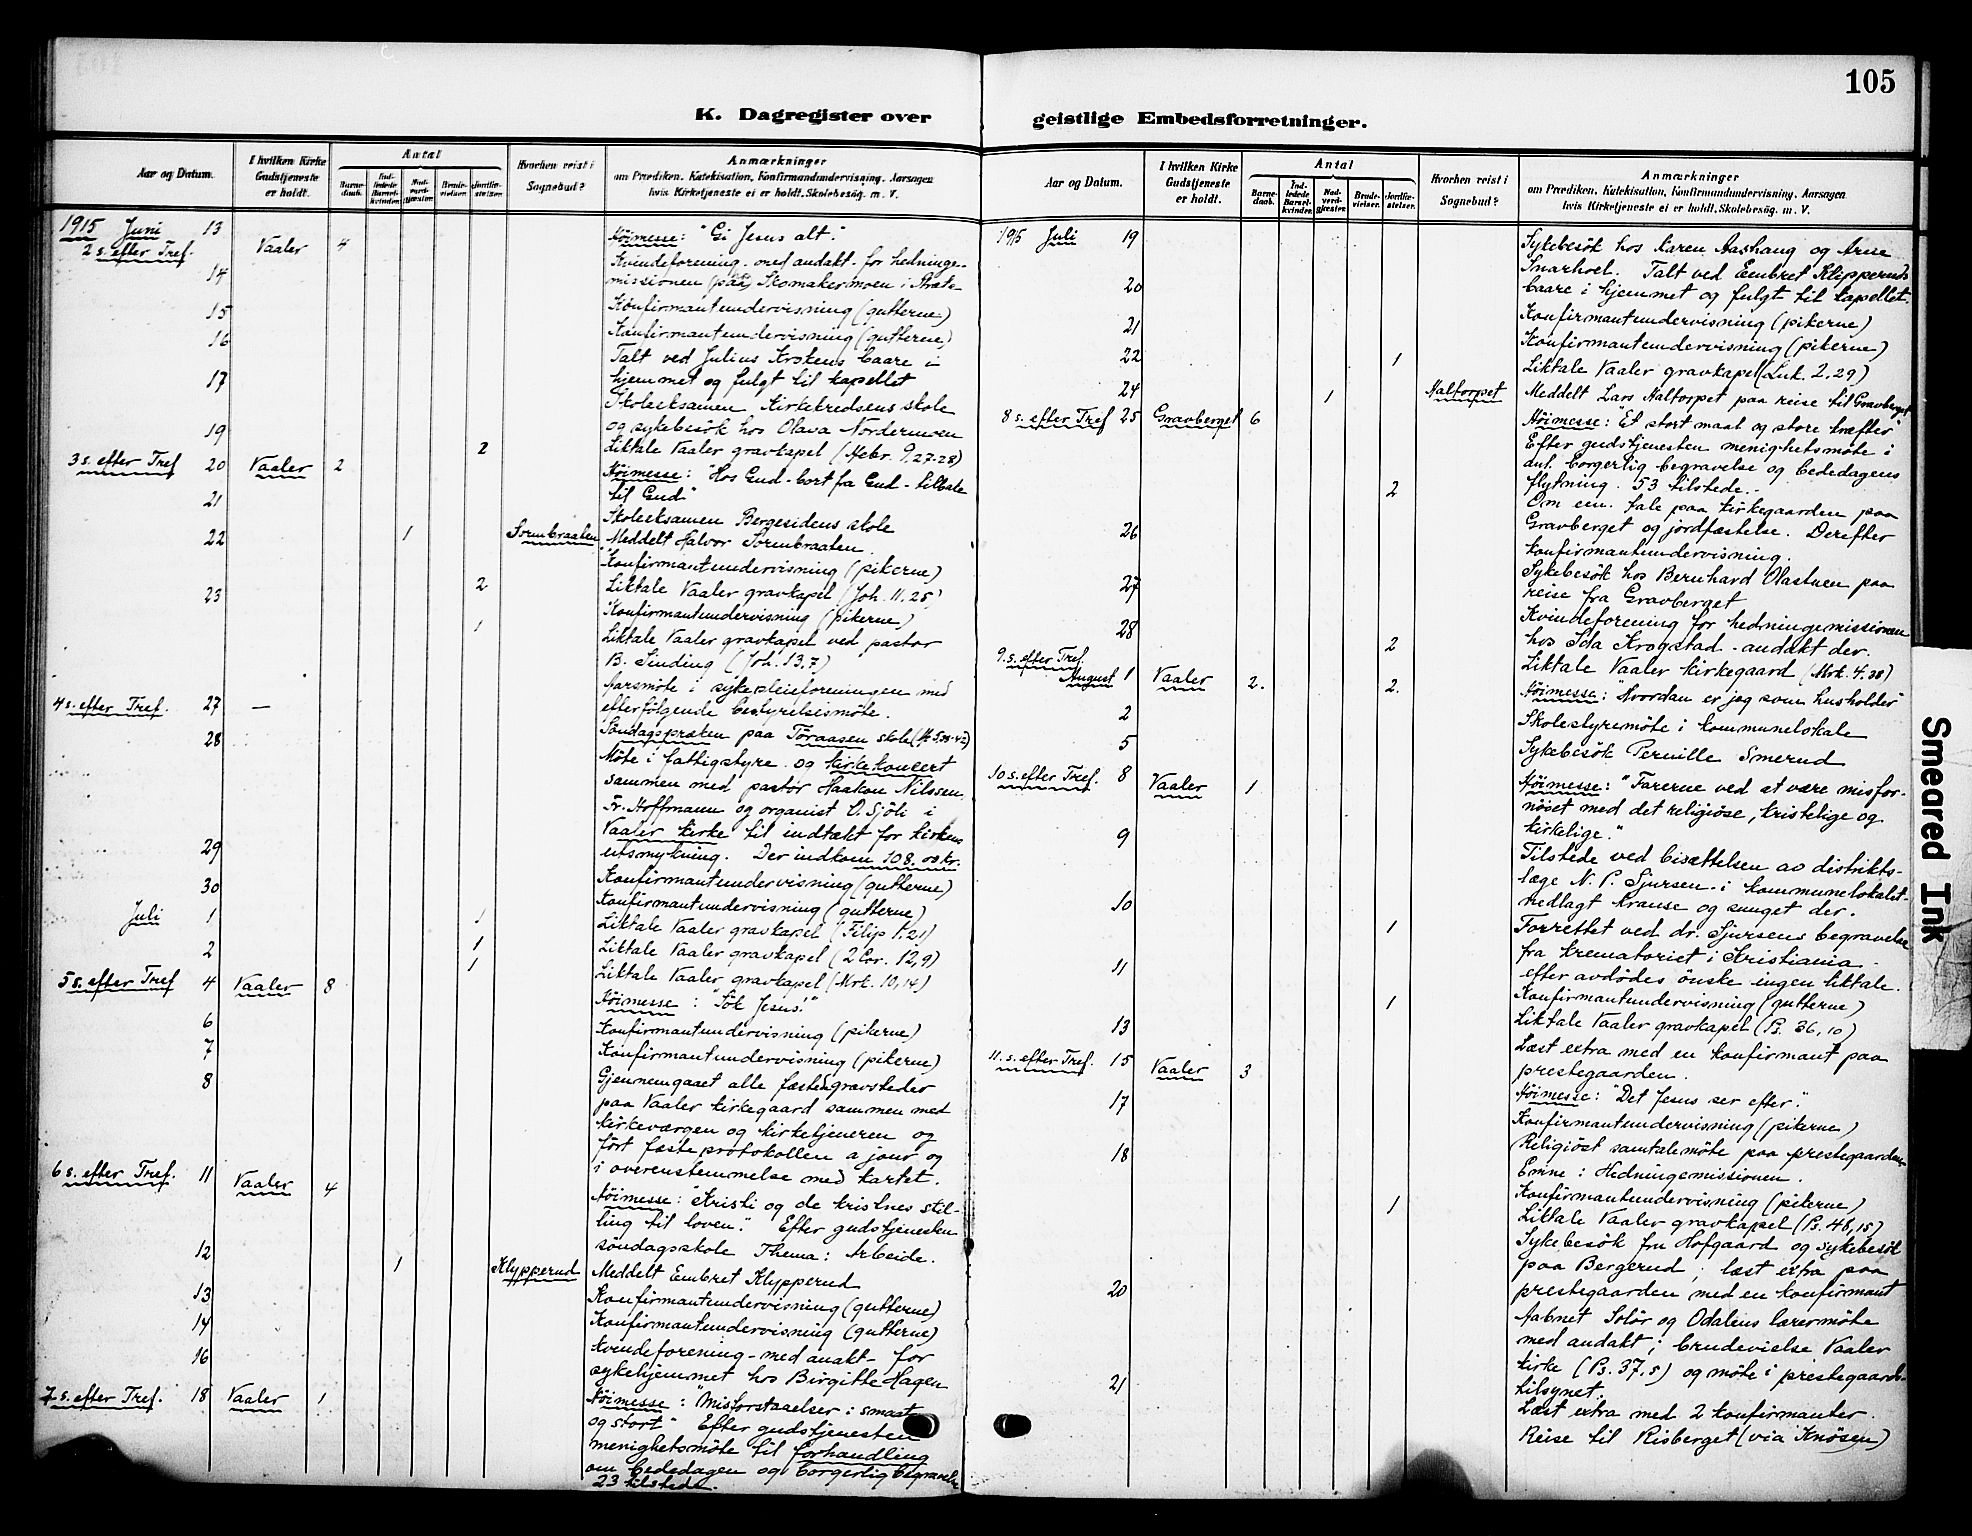 105
K. Dagregister over geistlige Embedsforretninger.
Aar og Datum.
I hvilken Kirke Gudstjeneste er holdt.
Antal
Barne-daab.
Ind-ledede Barsel-kvinder.
Nad-verd-gjæster.
Brude-vielser.
Jordfæ-stelser.
Hvorhen reist i Sognebud?
Anmærkninger
om Prædiken, Katekisation, Konfirmandundervisning, Aarsagen
hvis Kirketjeneste ei er holdt, Skolebesøg. m. V.
1915 Juni 13
2 s. efter Tref. Vaaler 4
Höimesse: "Gi Jesus alt."
Kvindeforening med andakt for hedninge-
14 missionen (paa) Skomakermoen i Aate-
15 Konfirmantundervisning (gutterne)
16 Konfirmantundervisning (gutterne)
Talt ved Julius Krokens baare i
17 hjemmet og fulgt til kapellet
Skoleeksamen Kirkekredsens skole
19 og sykebesök hos Olava Nordermoen
2 Liktale Vaaler gravkapel (Hebr. 9,27-28)
3 s. efter Tref 20 Vaaler 2
Höimesse: "Hos Gud - bort fra Gud - tilbake
til Gud"
21 Skoleeksamen Bergesidens skole
22 1 Sormbraaten Meddelt Halvor Sormbraaten.
Konfirmantundervisning (pikerne)
23 2 Liktale Vaaler gravkapel (Joh. 11.25)
Konfirmantundervisning (pikerne)
1 Liktale Vaaler gravkapel ved pastor
B. Sinding (Joh. 13.7)
Aarsmöte i sykepleieforeningen med
4 s. efter Tref. 27 — efterfölgende bestyrelsesmöte.
Söndagspræken paa Töraasen skole (Mt 5,38-42)
28 Möte i fattigstyre og kirkekoncert
sammen med pastor Haakon Nilssen,
Fr. Hoffmann og organist O. Sjöli i
Vaaler kirke til indtækt for kirkens
29 utsmykning. Der indkom 108.00 kr.
30 Konfirmantundervisning (gutterne)
Konfirmantundervisning (gutterne)
Juli 1 1 Liktale Vaaler gravkapel (Filip 1,21)
2 1 Liktale Vaaler gravkapel (2 Cor. 12,9)
1 Liktale Vaaler gravkapel (Mrk. 10,14)
5 s. efter Tref 4 Vaaler 8
Höimesse: "Sök Jesus!"
6 Konfirmantundervisning (pikerne)
7 Konfirmantundervisning (pikerne)
8 Gjennemgaaet alle fæstengravsteder
paa Vaaler kirkegaard sammen med
kirkeværgen og kirketjeneren og
fört fæsteprotokollen a jour og
6 s. efter Tref. 11 Vaaler 4
i overenstemmelse med kartet.
Höimesse: "Kristi og de kristnes stil-
ling til loven." Efter gudstjenesten
söndagsskole Thema: Arbeide.
12 1 Klypperud Meddelt Embret Klypperud
13 Konfirmantundervisning (gutterne)
14 Konfirmantundervisning (gutterne)
16 Kvindeforening - med anakt - for
sykehjemmet hos Birgitte Hagen
7 s. efter Tref. 18 Vaaler 1
Höimesse: "Misforstaaelser i smaat
og stort" Efter gudstjenesten
menighetsmöte til forhandling
om bededagen og borgerlig begravelse
23 tilstede.
1915 Juli 19 Sykebesök hos Karen Aashaug og Arne
Snarhoel. Talt ved Embret Klipperuds
20 baare i hjemmet og fulgt til kapellet.
21 Konfirmantundervisning (pikerne)
Konfirmantundervisning (pikerne)
22 1 Liktale Vaaler gravkapel (Luk. 2,29)
24 1 Halforpet Meddelt Lars Halforpet paa reise til Gravberget
8 s. efter Tref 25 Gravberget 6
Höimesse: "Et stort maal og store kræfter"
Efter gudstjenesten menighetsmöte i
anl. borgerlig begravelse og bededagens
2 flytning. 53 tilstede.
Om em. tale paa kirkegaarden paa
26 Gravberget og jordfæstelse. Derefter
konfirmantundervisning.
27 Sykebesök hos Bernhard Olastuen paa
reise fra Gravberget
28 Kvindeforening for hedningemissionen
2 hos Ida Krogstad - andakt der.
Liktale Vaaler kirkegaard (Mrk. 4.38)
9. s. efter Tref.
August 1 Vaaler 2. 2.
Höimesse: "Hvordan er jeg som husholder"
2 Skolestyremöte i kommunelokale
5 Sykebesök Pernille Smerud
10 s. efter Tref. 8 Vaaler 1
Höimesse: "Farerne ved at være misfor-
nöiet med det religiöse, kristelige og
kirkelige."
9 Tilstede ved bisættelsen av distrikts-
læge N. P. Sjursen i kommunelokalet-
10 nedlagt kranse og sunget der.
1 Forrettet ved dr. Sjursens begravelse
fra krematoriet i Kristiania -
11 efter avdödes önske ingen liktale.
Konfirmantundervisning (gutterne)
1 Liktale Vaaler gravkapel (Ps. 36,10)
13 Læst extra med en konfirmant paa
prestegaarden.
11. s. efter Tref. 15 Vaaler 3
Höimesse: "Det Jesus ser efter."
17 Konfirmantundervisning (pikerne)
Religiöst samtalemöte paa prestegaarden
18 Emne: Hedningemissionen.
Konfirmantundervisning (pikerne)
1 Liktale Vaaler gravkapel (Ps. 48,15)
Sykebesök fru Hofgaard og sykebesök
paa Bergerud; læst extra paa
20 prestegaarden med en konfirmant
Aabnet Solör og Odalens lærermöte
med andakt; brudevielse Vaaler
kirke (Ps. 37.5) og möte i prestegaards-
21 tilsynet.
Læst extra med 2 konfirmanter.
Reise til Risberget (via Knösen)
Smeared Ink